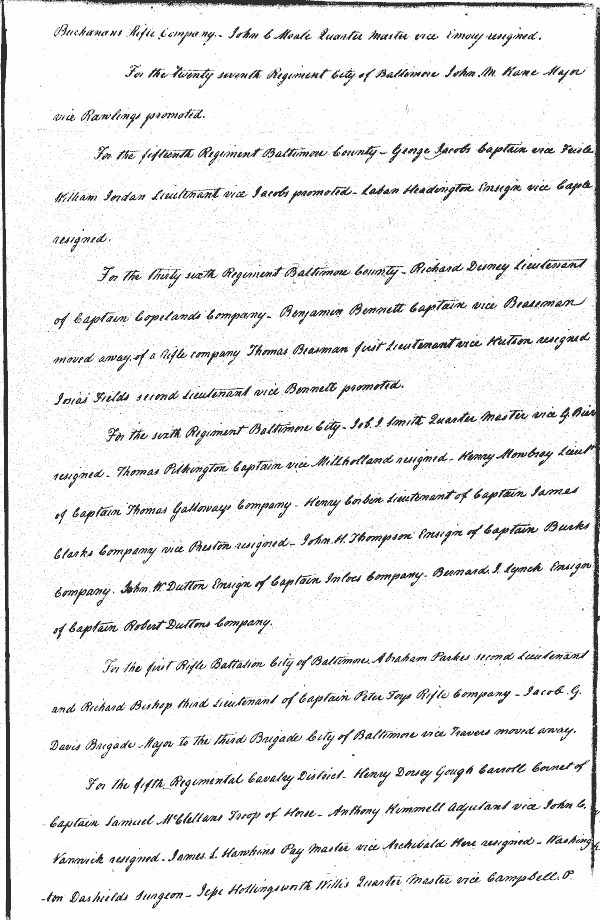 Buchanans Rifle Company - John C Moale Quarter Master vice Emory resigned.
For the twenty seventh Regiment City of Baltimore John M Kane Major
vice Rawlings promoted.
For the fifteenth Regiment Baltimore County - George Jacobs Captain vice
William Jordan Lieutenant vice Jacobs promoted - Laban Headington Ensign vice Caple
resigned.
For the thirty sixth Regiment Baltimore County - Richard Disney Lieutenant
of Captain Copelands Company - Benjamin Bennett Captain vice Beaseman
moved away, of a rifle company Thomas Beasman first Lieutenant vice Watson resigned
Josias Fields second Lieutenant vice Bennett promoted.
For the sixth Regiment Baltimore City - Job. J. Smith Quarter Master vice G.
resigned - Thomas Pilkington Captain vice Millholland resigned - Henry Mowbray Lieut
of Captain Thomas Galloways Company - Henry Corben Lieutenant of Captain James
Clarks Company vice Preston resigned - John. H. Thompson Ensign of Captain Burks
Company. John. W. Dutton Ensign of Captain Inloes Company - Bernard. J. Lynch Ensign
of Captain Robert Duttons Company.
For the first Rifle Battalion City of Baltimore. Abraham Parkes second Lieutenant
and Richard Bishop third Lieutenant of Captain Peter Foys Rifle Company - Jacob. G.
Davis Brigade Major to the third Brigade City of Baltimore vice Travers moved away.
For the fifth Regimental Cavalry District - Henry Dorsey Gough Carroll Cornet of
Captain Samuel McClellans Troop of Horse - Anthony Kimmell Adjutant vice John C.
Vanwick resigned - James L Hawkins Pay Master vice Archibald Kerr resigned - Washing
-ton Dashields Surgeon - Jesse Hollingsworth Willis Quarter Master vice Campbell. P.